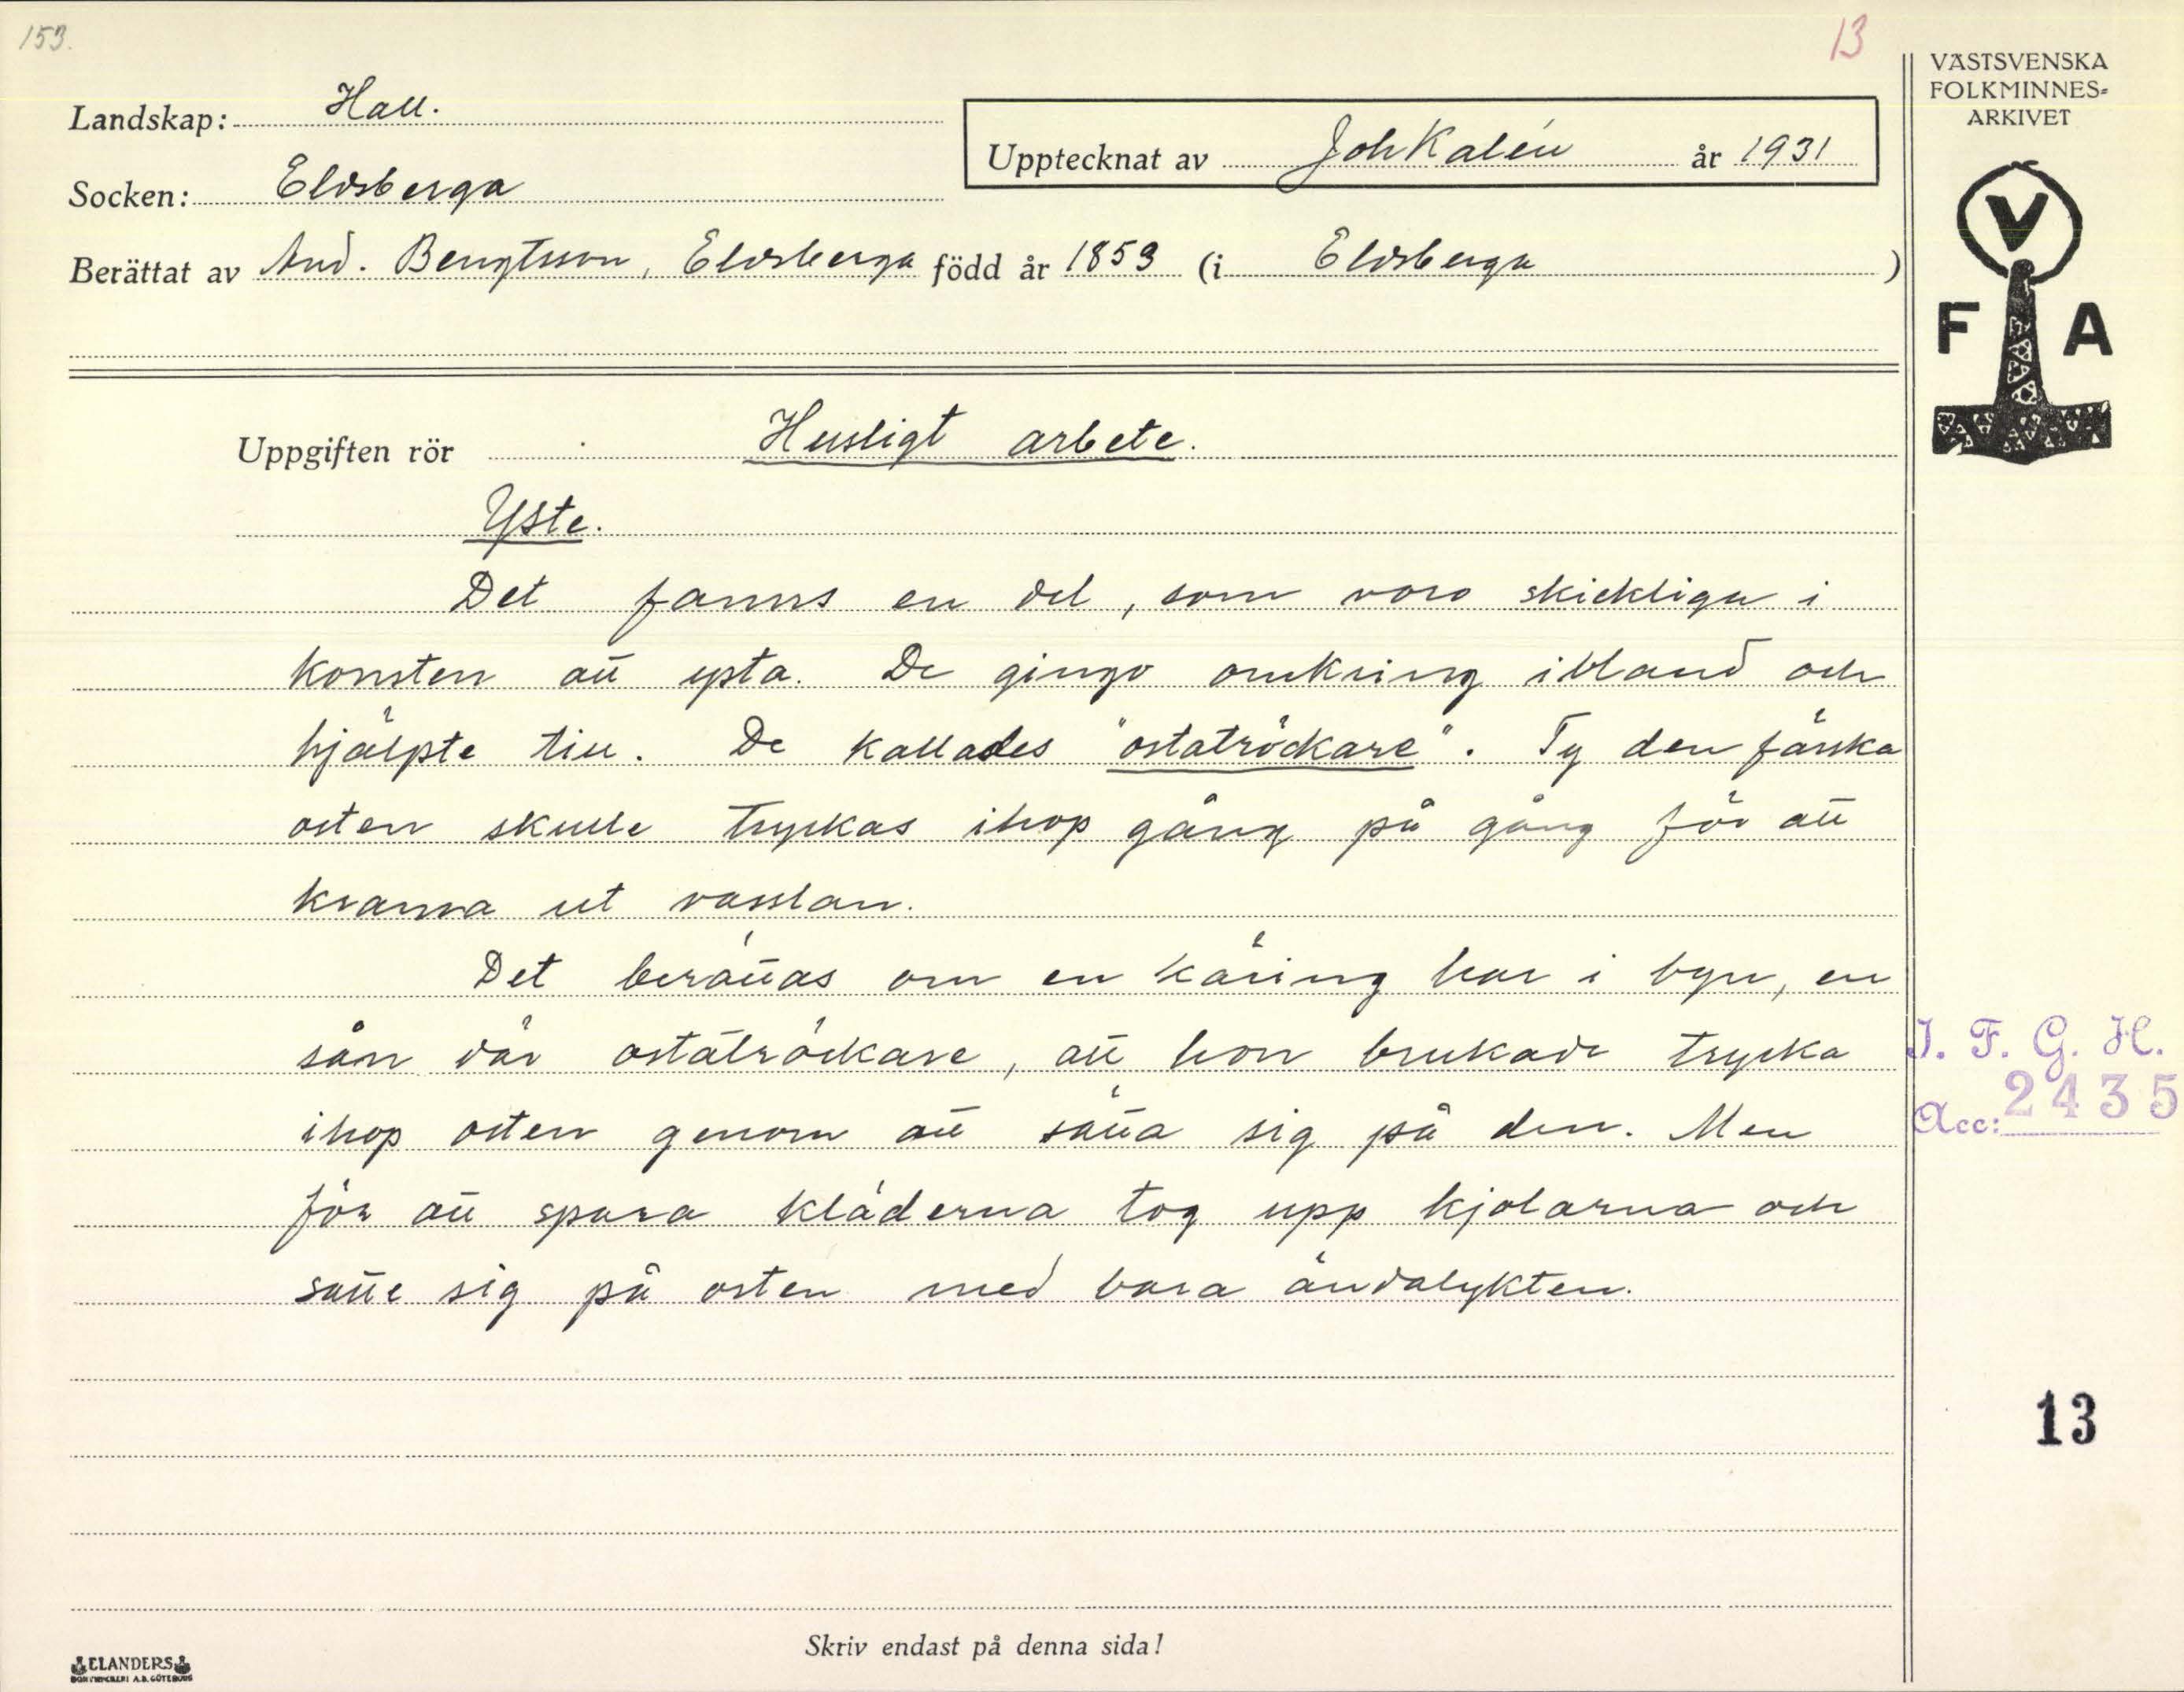 153.
13
VÄSTSVENSKA
FOLKMINNES-
ARKIVET
Landskap: Hall.
Upptecknat av Joh Kalén år 1931
Socken: Eldsberga
Berättat av And. Bengtsson, Eldsberga född år 1853 (i Eldsberga )
V
F A
Uppgiften rör Husligt arbete.
Yste.
Det fanns en del, som voro skickliga i
konsten att ysta. De gingo omkring ibland och
hjälpte till. De kallades "ostatröckare". Ty den färska
osten skulle tryckas ihop gång på gång för att
krama ut vasslan.
Det berättas om en käring här i byn, en
sån där ostatröckare, att hon brukade trycka
ihop osten genom att sätta sig på den. Men
för att spara kläderna tog upp kjolarna och
satte sig på osten med bara ändalykten.
I. F. G. H.
Acc: 2435
13
Skriv endast på denna sida!
ELANDERS
BOKTRYCKERI A.B. GÖTEBORG